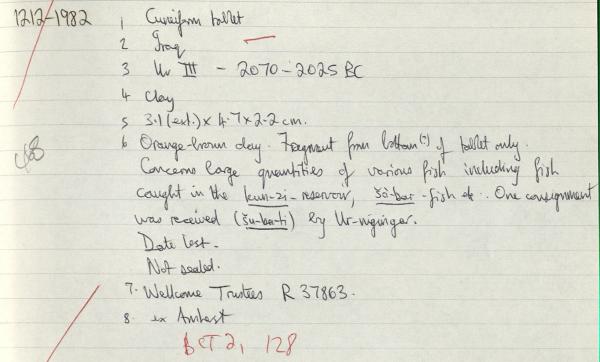 1212-1982 1 Cuneiform tablet
2 Iraq
3 Ur III - 2070-2025 BC
4 Clay
5 3.1 (ext.) x 4.7 x 2.2 cm.
6 Orange-brown clay. Fragment from bottom (?) of tablet only.
Concerns large quantities of various fish including fish
caught in the kun-zi-reservoir, -fish etc. One consignment
was received (šu-ba-ti) by Ur-nigingar.
Date lost.
Not sealed.
7. Wellcome Trustees R 37863.
8 ex Amhest
BCT 2, 128